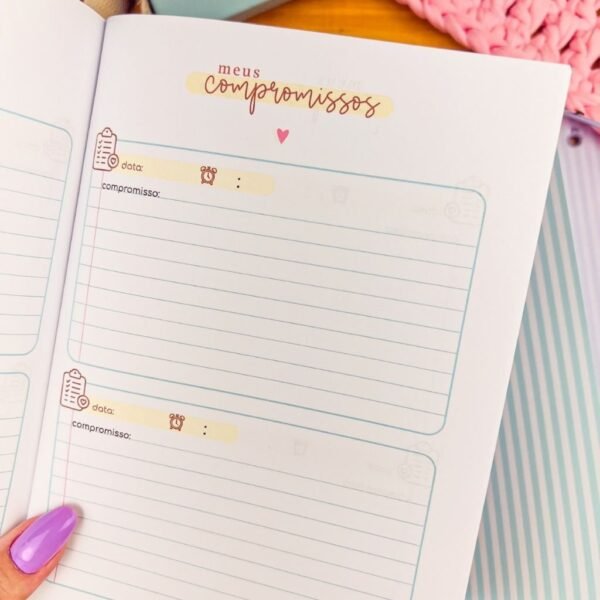 meus
compromissos
data: :
compromisso:
data: :
compromisso: